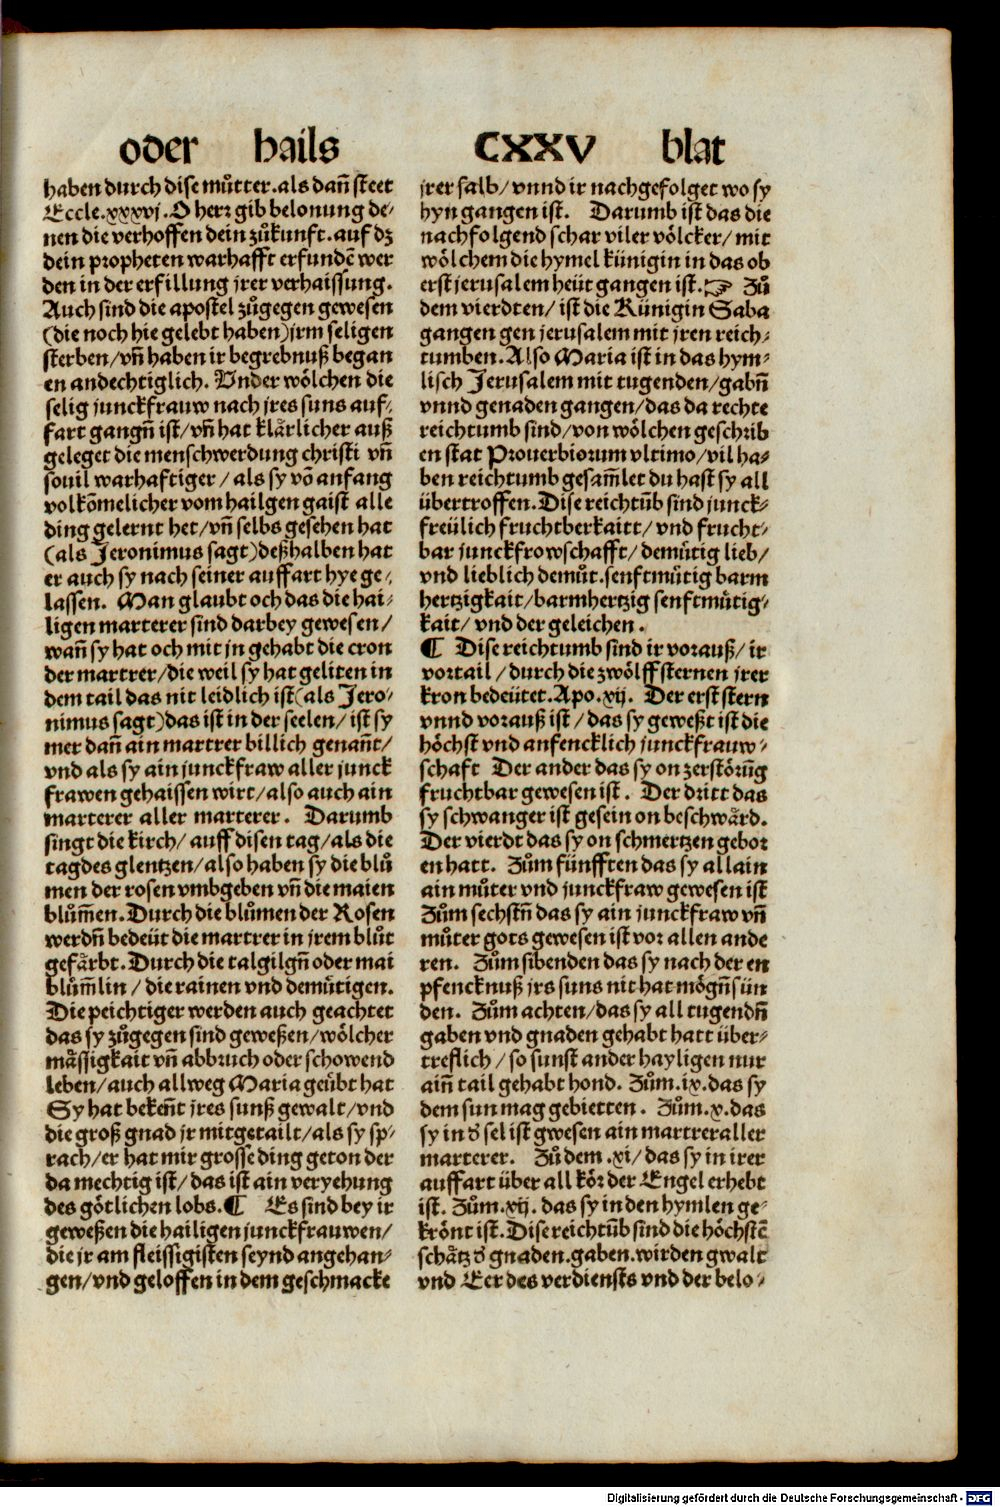 oder hails CXXV blat
haben durch dise můtter. als dañ steet
Eccle. xxxvj. O herr gib belonung de⸗
nen die verhoffen dein zůkunft. auf dz
dein propheten warhafft erfundē wer
den in der erfillung jrer verhaissung.
Auch sind die apostel zůgegen gewesen
(die noch hie gelebt haben) jrm seligen
sterben/ vñ haben ir begrebnuß began
en andechtiglich. Vnder wölchen die
selig junckfrauw nach jres suns auf⸗
fart gangñ ist/ vñ hat klärlicher auß
geleget die menschwerdung christi vñ
souil warhaftiger/ als sy võ anfang
volkõmelicher vom hailgen gaist alle
ding gelernt het/ vñ selbs gesehen hat
(als Jeronimus sagt) deßhalben hat
er auch sy nach seiner auffart hye ge⸗
lassen. Man glaubt och das die hai⸗
ligen marterer sind darbey gewesen/
wañ sy hat och mit jn gehabt die cron
der martrer/ die weil sy hat geliten in
dem tail das nit leidlich ist (als Jero⸗
nimus sagt) das ist in der seelen/ ist sy
mer dañ ain martrer billich genañt/
vnd als sy ain junckfraw aller junck
frawen gehaissen wirt/ also auch ain
marterer aller marterer. Darumb
singt die kirch/ auff disen tag/ als die
tag des glentzen/ also haben sy die blů
men der rosen vmbgeben vñ die maien
blům̃en. Durch die blůmen der Rosen
werdñ bedeüt die martrer in jrem blůt
gefärbt. Durch die talgilgñ oder mai
blům̃lin/ die rainen vnd demütigen.
Die peichtiger werden auch geachtet
das sy zůgegen sind geweßen/ wölcher
mässigkait vñ abbruch oder schowend
leben/ auch allweg Maria geübt hat
Sy hat bekeñt jres sunß gewalt/ vnd
die groß gnad jr mitgetailt/ als sy sp⸗
rach/ er hat mir grosse ding geton der
da mechtig ist/ das ist ain veryehung
des götlichen lobs. ¶ Es sind bey ir
geweßen die hailigen junckfrauwen/
die jr am fleissigisten seynd angehan⸗
gen/ vnd geloffen in dem geschmacke
jrer salb/ vnnd ir nachgefolget wo sy
hyn gangen ist. Darumb ist das die
nachfolgend schar viler völcker/ mit
wölchem die hymel künigin in das ob
erst jerusalem heüt gangen ist. ☞ Zů
dem vierdten/ ist die Künigin Saba
gangen gen jerusalem mit jren reich⸗
tumben. Also Maria ist in das hym⸗
lisch Jerusalem mit tugenden/ gabñ
vnnd genaden gangen/ das da rechte
reichtumb sind/ von wölchen geschrib
en stat Prouerbiorum vltimo/ vil ha⸗
ben reichtumb gesam̃let du hast sy all
übertroffen. Dise reichtũb sind junck⸗
freülich fruchtberkaitt/ vnd frucht⸗
bar junckfrowschafft/ demütig lieb/
vnd lieblich demůt. senftmütig barm
hertzigkait/ barmhertzig senftmütig⸗
kait/ vnd der geleichen.
¶ Dise reichtumb sind ir vorauß/ ir
vortail/ durch die zwölff sternen jrer
kron bedeütet. Apo. xij. Der erst stern
vnnd vorauß ist/ das sy geweßt ist die
höchst vnd anfencklich junckfrauw⸗
schaft Der ander das sy on zerstörũg
fruchtbar gewesen ist. Der dritt das
sy schwanger ist gesein on beschwärd.
Der vierdt das sy on schmertzen gebor
en hatt. Zům fünfften das sy allain
ain můter vnd junckfraw gewesen ist
Zům sechstñ das sy ain junckfraw vñ
můter gots gewesen ist vor allen ande
ren. Zům sibenden das sy nach der en
pfencknuß jrs suns nit hat mögñ sün
den. Zům achten/ das sy all tugendñ
gaben vnd gnaden gehabt hatt über⸗
treflich/ so sunst ander hayligen nur
aiñ tail gehabt hond. Zům. ix. das sy
dem sun mag gebietten. Zům. x. das
sy in ď sel ist gwesen ain martrer aller
marterer. Zů dem. xi/ das sy in irer
auffart über all kör der Engel erhebt
ist. Zům. xij. das sy in den hymlen ge⸗
krönt ist. Dise reichtũb sind die höchstē
schätz ď gnaden. gaben. wirden gwalt
vnd Eer des verdiensts vnd der belo⸗
Digitalisierung gefördert durch die Deutsche Forschungsgemeinschaft - DFG